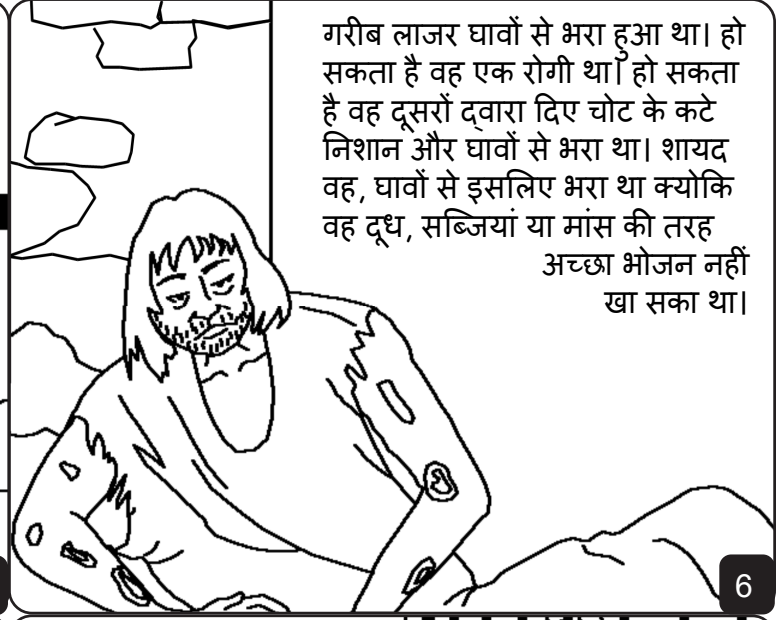 गरीब लाजर घावों से भरा हुआ था। हो
सकता है वह एक रोगी था। हो सकता
है वह दूसरों द्वारा दिए चोट के कटे
निशान और घावों से भरा था। शायद
वह, घावों से इसलिए भरा था क्योकि
वह दूध, सब्जियां या मांस की तरह
अच्छा भोजन नहीं
खा सका था।
6